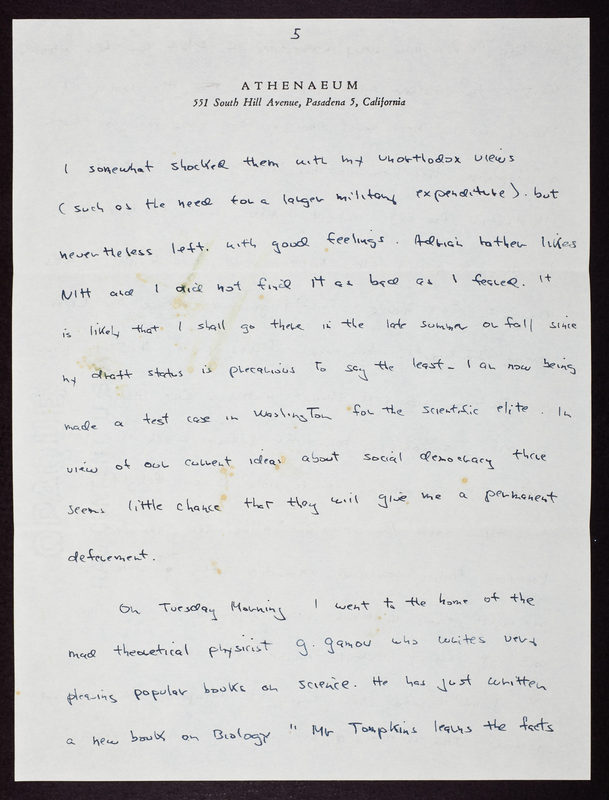 5
ATHENAEUM
551 South Hill Avenue, Pasadena 5, California
I somewhat shocked them with my unorthodox views
(such as the need for a larger military expenditure). but
nevertheless left. with good feelings. Adrian rather likes
NIH and I did not find it as bad as I feared. It
is likely that I shall go there in the late summer or fall since
my draft status is precarious to say the least - I am now being
made a test case in Washington for the scientific elite. In
view of our current ideas about social democracy there
seems little chance that they will give me a permanent
deferement.
On Tuesday Morning I went to the home of the
mad theoretical physicist G. Gamow who writes very
pleasing popular books on science. He has just written
a new book on Biology "Mr Tompkins learns the facts